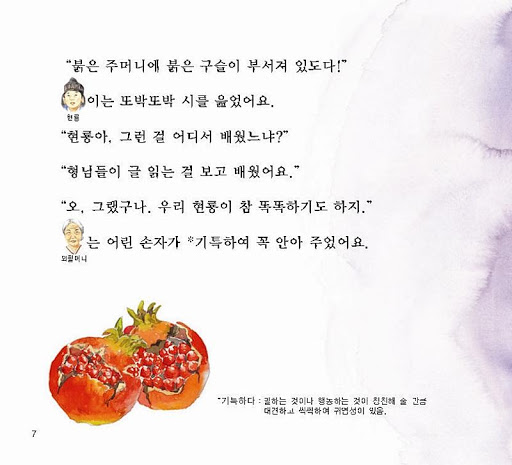 “붉은 주머니에 붉은 구슬이 부서져 있도다!”
이는 또박또박 시를 읊었어요.
현룡
“현룡아, 그런 걸 어디서 배웠느냐?”
“형님들이 글 읽는 걸 보고 배웠어요.”
“오, 그랬구나. 우리 현룡이 참 똑똑하기도 하지.”
는 어린 손자가 *기특하여 꼭 안아 주었어요.
외할머니
*기특하다 : 말하는 것이나 행동하는 것이 칭찬해 줄 만큼
대견하고 씩씩하며 귀염성이 있음.
7